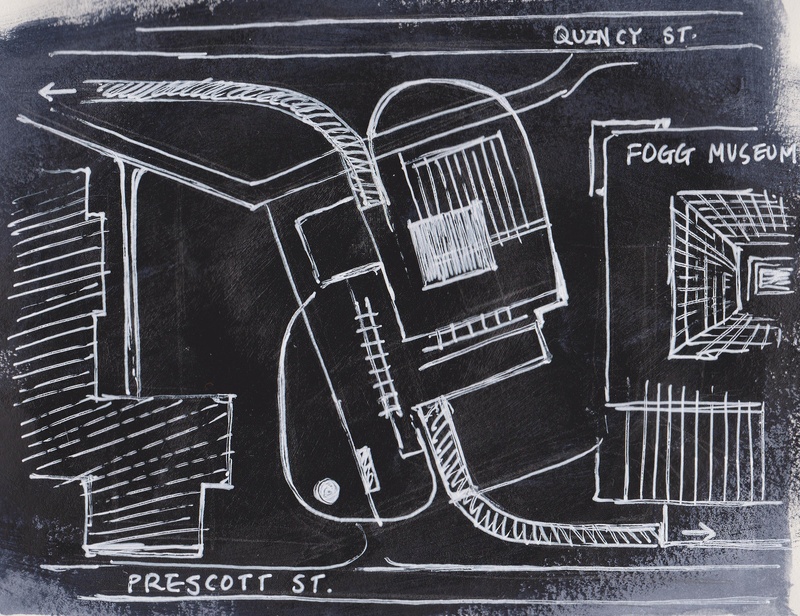 QUINCY ST.
FOGG MUSEUM
PRESCOTT ST.